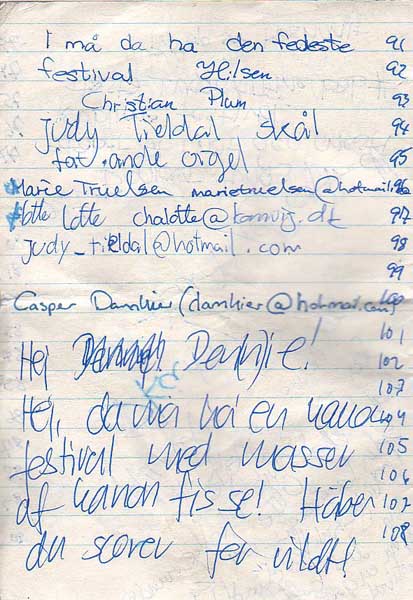 I må da ha den fedeste 91
festival Hilsen 92
Christian Plum 93
Judy Tieldal skål 94
fat ande orgel 95
Marie Truelsen marietruelsen@hotmail. 96
Lotte Lotte chalotte@ 97
judy_tieldal@hotmail.com 98
99
Casper Damkier (damkier@hotmail.com) 100
101
Hej Dan(n)ie! 102
103
Hej, da må ha en kanon 104
festival med masser 105
106
af kanon fisse! Håber 107
du scorer for vildt! 108